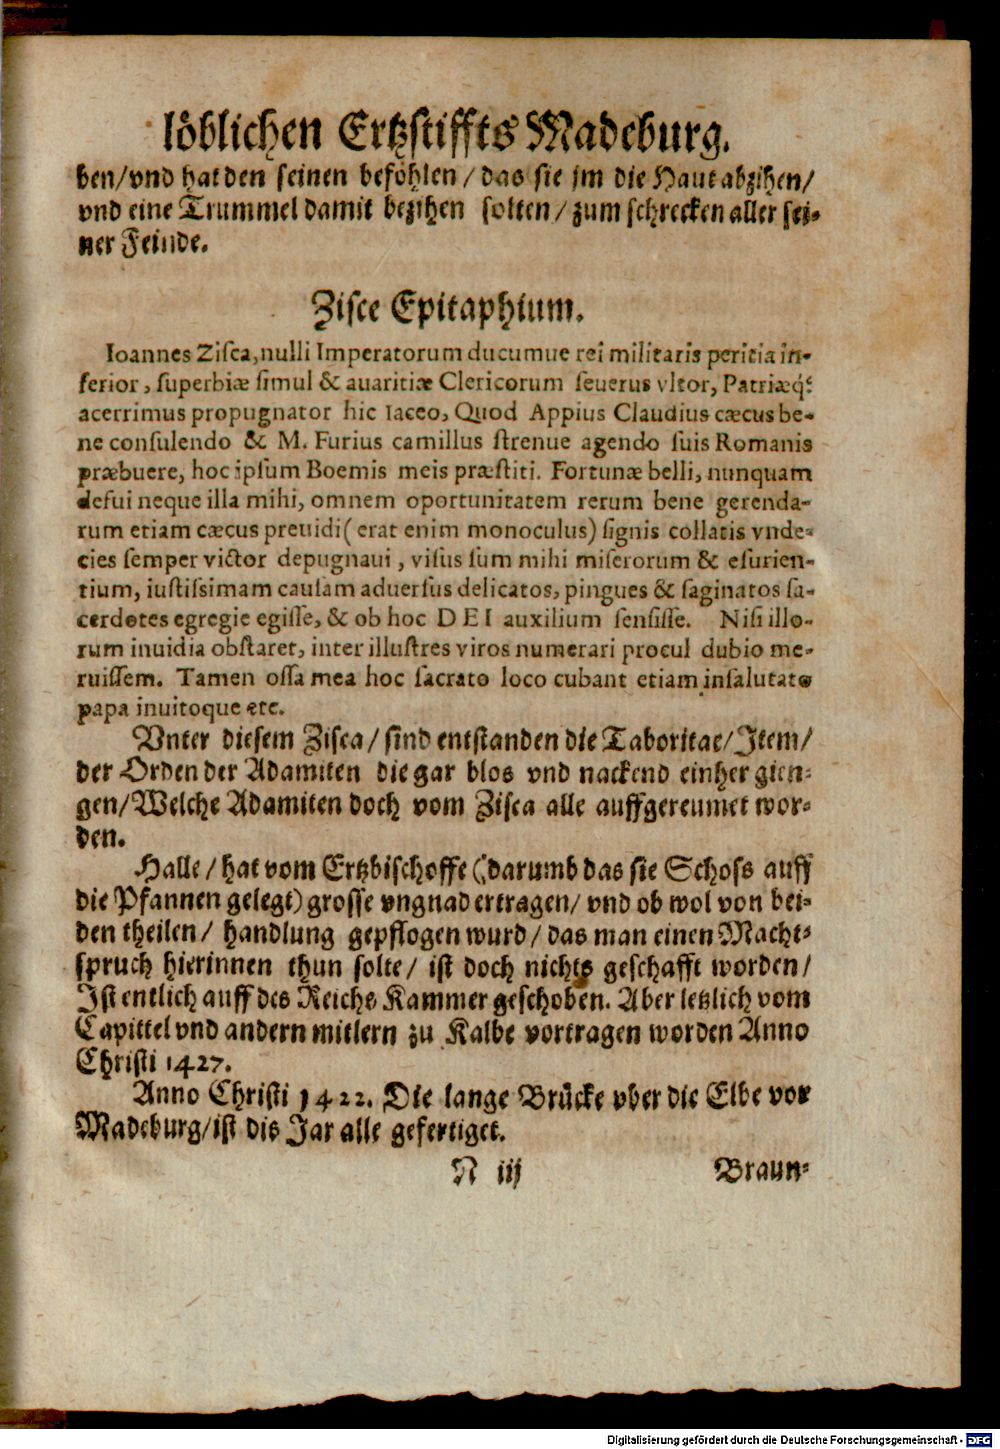 löblichen Ertzstiffts Madeburg.
ben/vnd hat den seinen befohlen/das sie jm die Haut abzihen/
vnd eine Trummel damit bezihen solten/zum schrecken aller sei-
ner Feinde.
Zisce Epitaphium.
Ioannes Zisca,nulli Imperatorum ducumue rei militaris peritia in-
ferior, superbiæ simul & auaritiæ Clericorum seuerus vltor, Patriæq́;
acerrimus propugnator hic Iaceo, Quod Appius Claudius cæcus be-
ne consulendo & M. Furius camillus strenue agendo suis Romanis
præbuere, hoc ipsum Boemis meis præstiti. Fortunæ belli, nunquam
defui neque illa mihi, omnem oportunitatem rerum bene gerenda-
rum etiam cæcus preuidi( erat enim monoculus) signis collatis vnde-
cies semper victor depugnaui, visus sum mihi miserorum & esurien-
tium, iustissimam causam aduersus delicatos, pingues & saginatos sa-
cerdotes egregie egisse, & ob hoc DEI auxilium sensisse. Nisi illo-
rum inuidia obstaret, inter illustres viros numerari procul dubio me-
ruissem. Tamen ossa mea hoc sacrato loco cubant etiam insalutato
papa inuitoque etc.
Vnter diesem Zisca/sind entstanden die Taboritae/Item/
der Orden der Adamiten die gar blos vnd nackend einher gien-
gen/Welche Adamiten doch vom Zisca alle auffgereumet wor-
den.
Halle/hat vom Ertzbischoffe (darumb das sie Schoss auff
die Pfannen gelegt) grosse vngnad ertragen/vnd ob wol von bei-
den theilen/ handlung gepflogen wurd/das man einen Macht-
spruch hierinnen thun solte/ ist doch nichts geschafft worden/
Ist entlich auff des Reichs Kammer geschoben. Aber letzlich vom
Capittel vnd andern mitlern zu Kalbe vortragen worden Anno
Christi 1427.
Anno Christi 1422. Die lange Brücke vber die Elbe vor
Madeburg/ist dis Jar alle gefertiget.
N iij Braun-
Digitalisierung gefördert durch die Deutsche Forschungsgemeinschaft - DFG